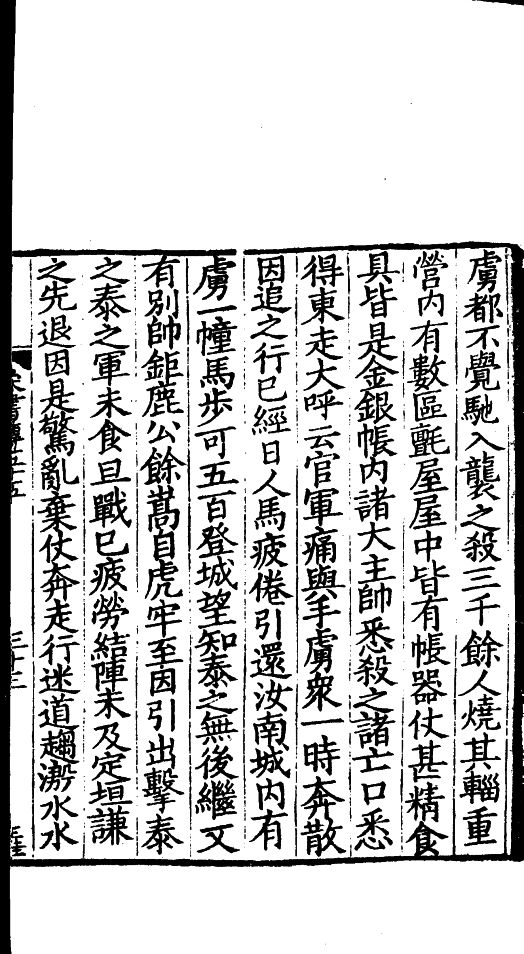 虜都不覺馳入襲之殺三千餘人燒其輜重
營内有數區氊屋屋中皆有帳器仗甚精食
具皆是金銀帳内諸大主帥悉殺之諸亡口悉
得東走大呼云官軍痛與手虜衆一時奔散
因追之行已經日人馬疲倦引還汝南城内有
虜一幢馬步可五百登城望知泰之無後繼又
有别帥鉅鹿公餘嵩自虎牢至因引出擊泰
之泰之軍未食旦戰已疲勞結陣未及定垣謙
之先退因是驚亂棄仗奔走行迷道趨溵水水
三十三